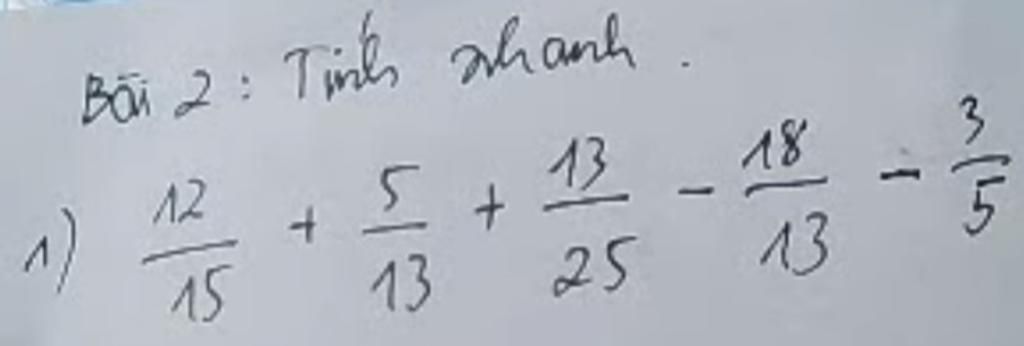 Bài 2 : Tính nhanh .
1) 12/15 + 5/13 + 13/25 - 18/13 - 3/5